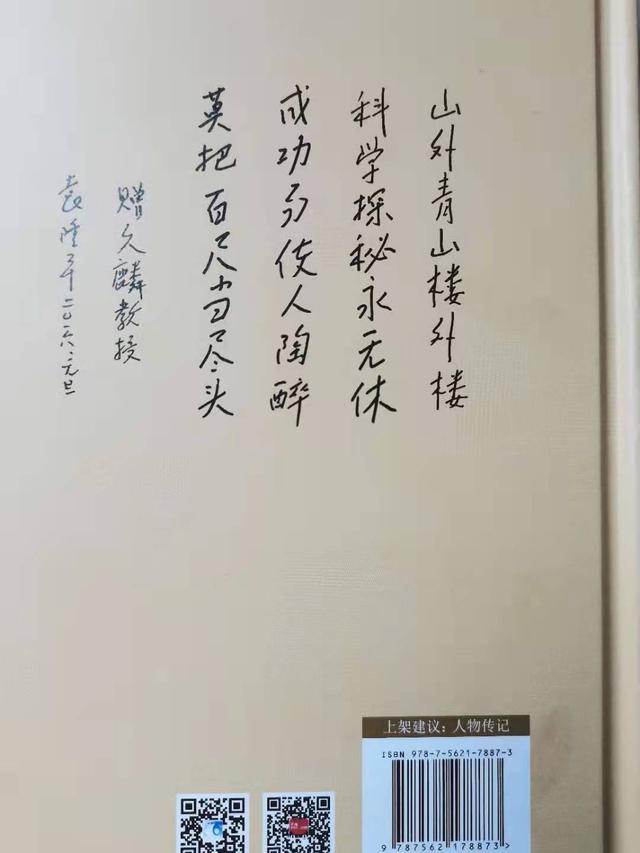 山外青山楼外楼
科学探秘永无休
成功易使人陶醉
莫把百尺当尽头
赠久麟教授
袁隆平 二〇一六.元旦
上架建议：人物传记
ISBN 978-7-5621-7887-3
9 787562 178873 >